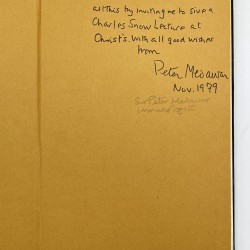 all this by inviting me to give a
Charles Snow Lecture at
Christ's. With all good wishes
from
Peter Medawar
Nov. 1979
Sir Peter Medawar